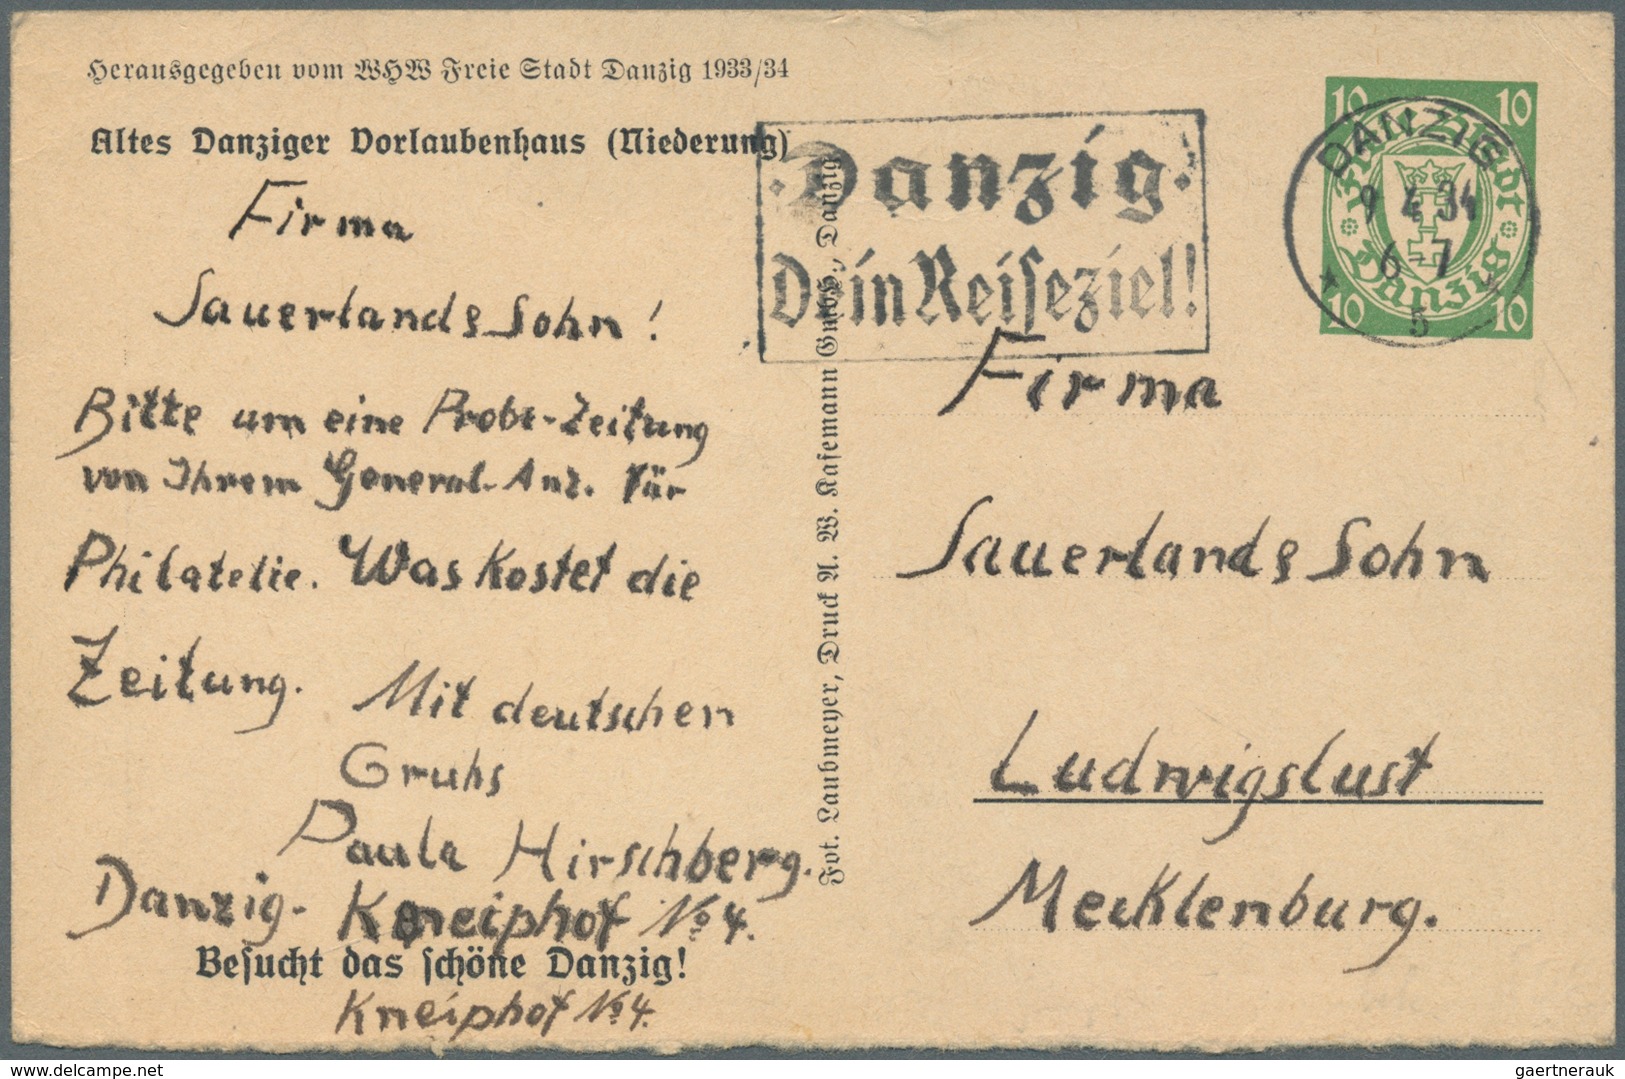 Herausgegeben vom WHW Freie Stadt Danzig 1933/34
Altes Danziger Vorlaubenhaus (Niederung)
Firma
Sauerlands Sohn!
Bitte um eine Probe-Zeitung
von Ihrem General-Anz. für
Philatelie. Was kostet die
Zeitung. Mit deutschen
Gruhs
Paula Hirschberg.
Danzig- Kneiphof No 4.
Besucht das schöne Danzig!
Kneiphof No 4.
Fot. Laubmeyer, Druck A. W. Kafemann GmbH., Danzig
Danzig.
Dein Reiseziel!
10 10
Freie Stadt
Danzig
10 10
DANZIG
9 4 34
6-7
5
Firma
Sauerlands Sohn
Ludwigslust
Mecklenburg.
www.delcampe.net
gaertnerauk